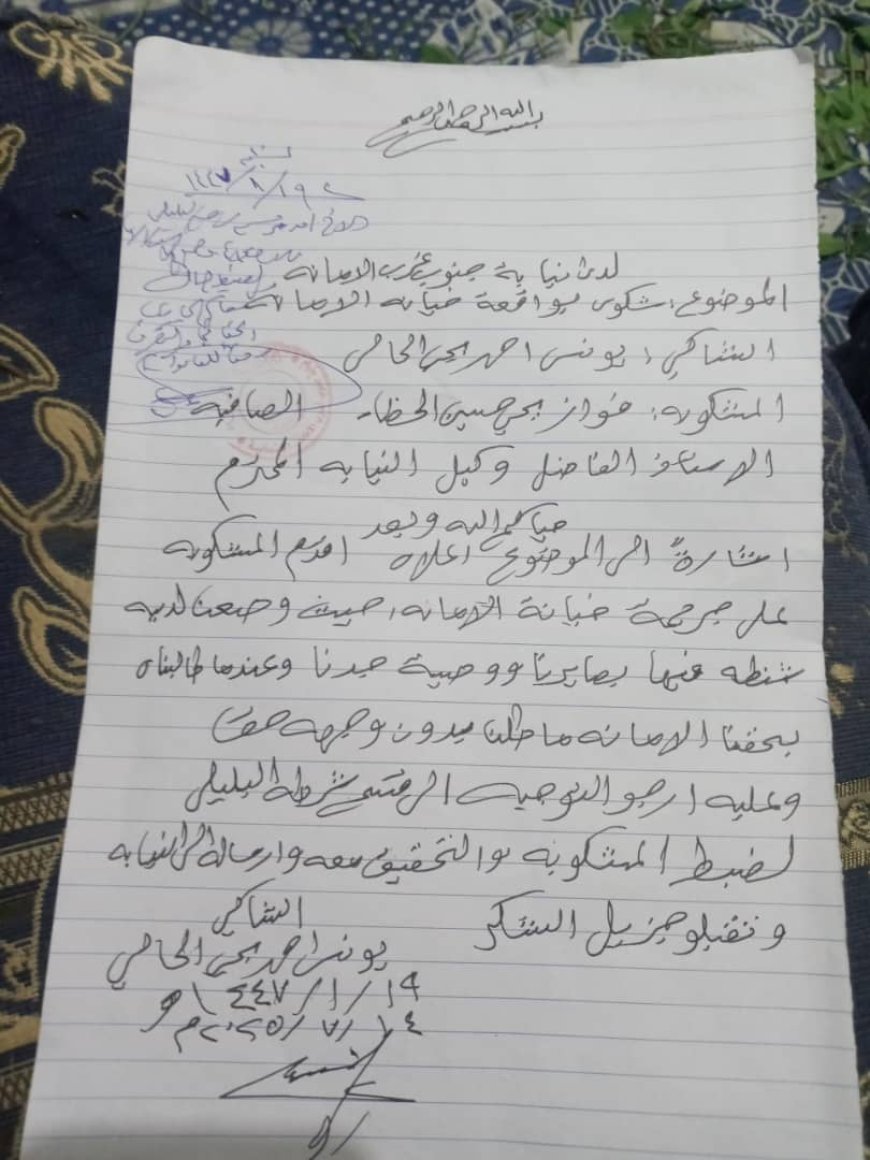 بسم الله الرحمن الرحيم
١٤٤٧/١/١٩
لدى نيابة جنوب غرب الامانه
الموضوع: شكوى بواقعة خيانه الامانه
الشاكي: يونس احمد يحيى الحامي
المشكوبه: فواز يحيى حسين الحظا الصافيه
الاستاذ الفاضل وكيل النيابه المحترم
حياكم الله وبعد
اشارةً الى الموضوع اعلاه اقدم المشكوبه
على جريمة خيانة الامانه، حيث وضعت لديه
شنطه فيها بصايرنا ووصية جدنا وعندما طالبناه
بحقنا الامانه ماطلنا بدون وجهه حق
وعليه ارجو التوجيه الى قسم شرطه البليلي
لضبط المشكوبه والتحقيق معه وارساله الى النيابه
وتقبلو جزيل الشكر
الشاكي
يونس احمد يحيى الحامي
١٩/١/١٤٤٧
١٤/٧/٢٠٢٥م